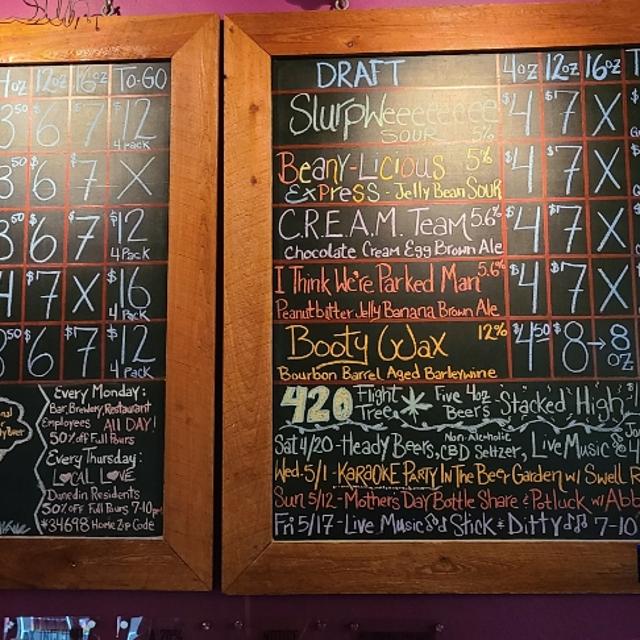 4oz 12oz 16oz TO-GO
3⁵⁰ $6 $7 $12 4 Pack
3⁵⁰ $6 $7 X
3⁵⁰ $6 $7 $12 4 Pack
4 $7 X $16 4 Pack
3⁵⁰ $6 $7 $12 4 Pack
Every Monday:
Bar, Brewery, Restaurant
Employees ALL DAY!
50% off Full Pours
Every Thursday:
LOCAL LOVE
Dunedin Residents
50% off Full Pours 7-10pm
*34698 Home Zip Code
DRAFT 4oz 12oz 16oz
SlurpWeeeeeeeee $4 $7 X
SOUR 5%
Beany-Licious 5% $4 $7 X
EXPRESS - Jelly Bean Sour
C.R.E.A.M. Team 5.6% $4 $7 X
Chocolate Cream Egg Brown Ale
I Think We're Parked Man 5.6% $4 $7 X
Peanutbutter Jelly Banana Brown Ale
Booty Wax 12% $4⁵⁰ $8→8 OZ
Bourbon Barrel Aged Barleywine
420 Flight Tree * Five 4oz Beer's "Stacked High"
Sat 4/20 - Heady Beers, Non-Alcoholic CBD Seltzer, Live Music
Wed. 5/1 - KARAOKE PARTY In The Beer Garden w/ Swell
Sun 5/12 - Mother's Day Bottle Share & Potluck w/ Abb
Fri 5/17 - Live Music Stick & Ditty 7-10